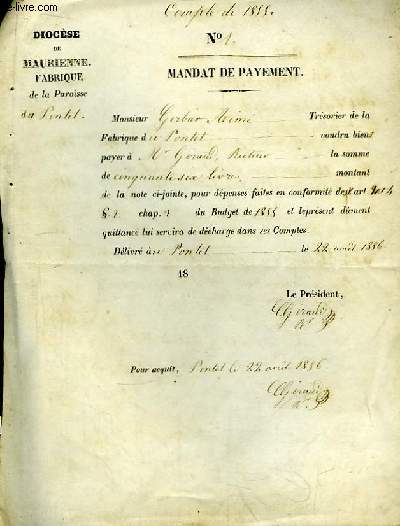 Compte de 1855.
DIOCÈSE
DE
MAURIENNE.
FABRIQUE
de la Paroisse
du Pontet.
No 1.
MANDAT DE PAYEMENT.
Monsieur Gerbar Aimé Trésorier de la
Fabrique du Pontet voudra bien
payer à Mr Girard, Recteur la somme
de cinquante six livres montant
de la note ci-jointe, pour dépenses faites en conformité de l'art
§. 1 chap. 1 du Budget de 1855 et le présent dûment
quittancé lui servira de décharge dans ses Comptes.
Délivré au Pontet le 22 août 1856
18
Le Président,
Girard
Pour acquit, Pontet le 22 août 1856
Girard